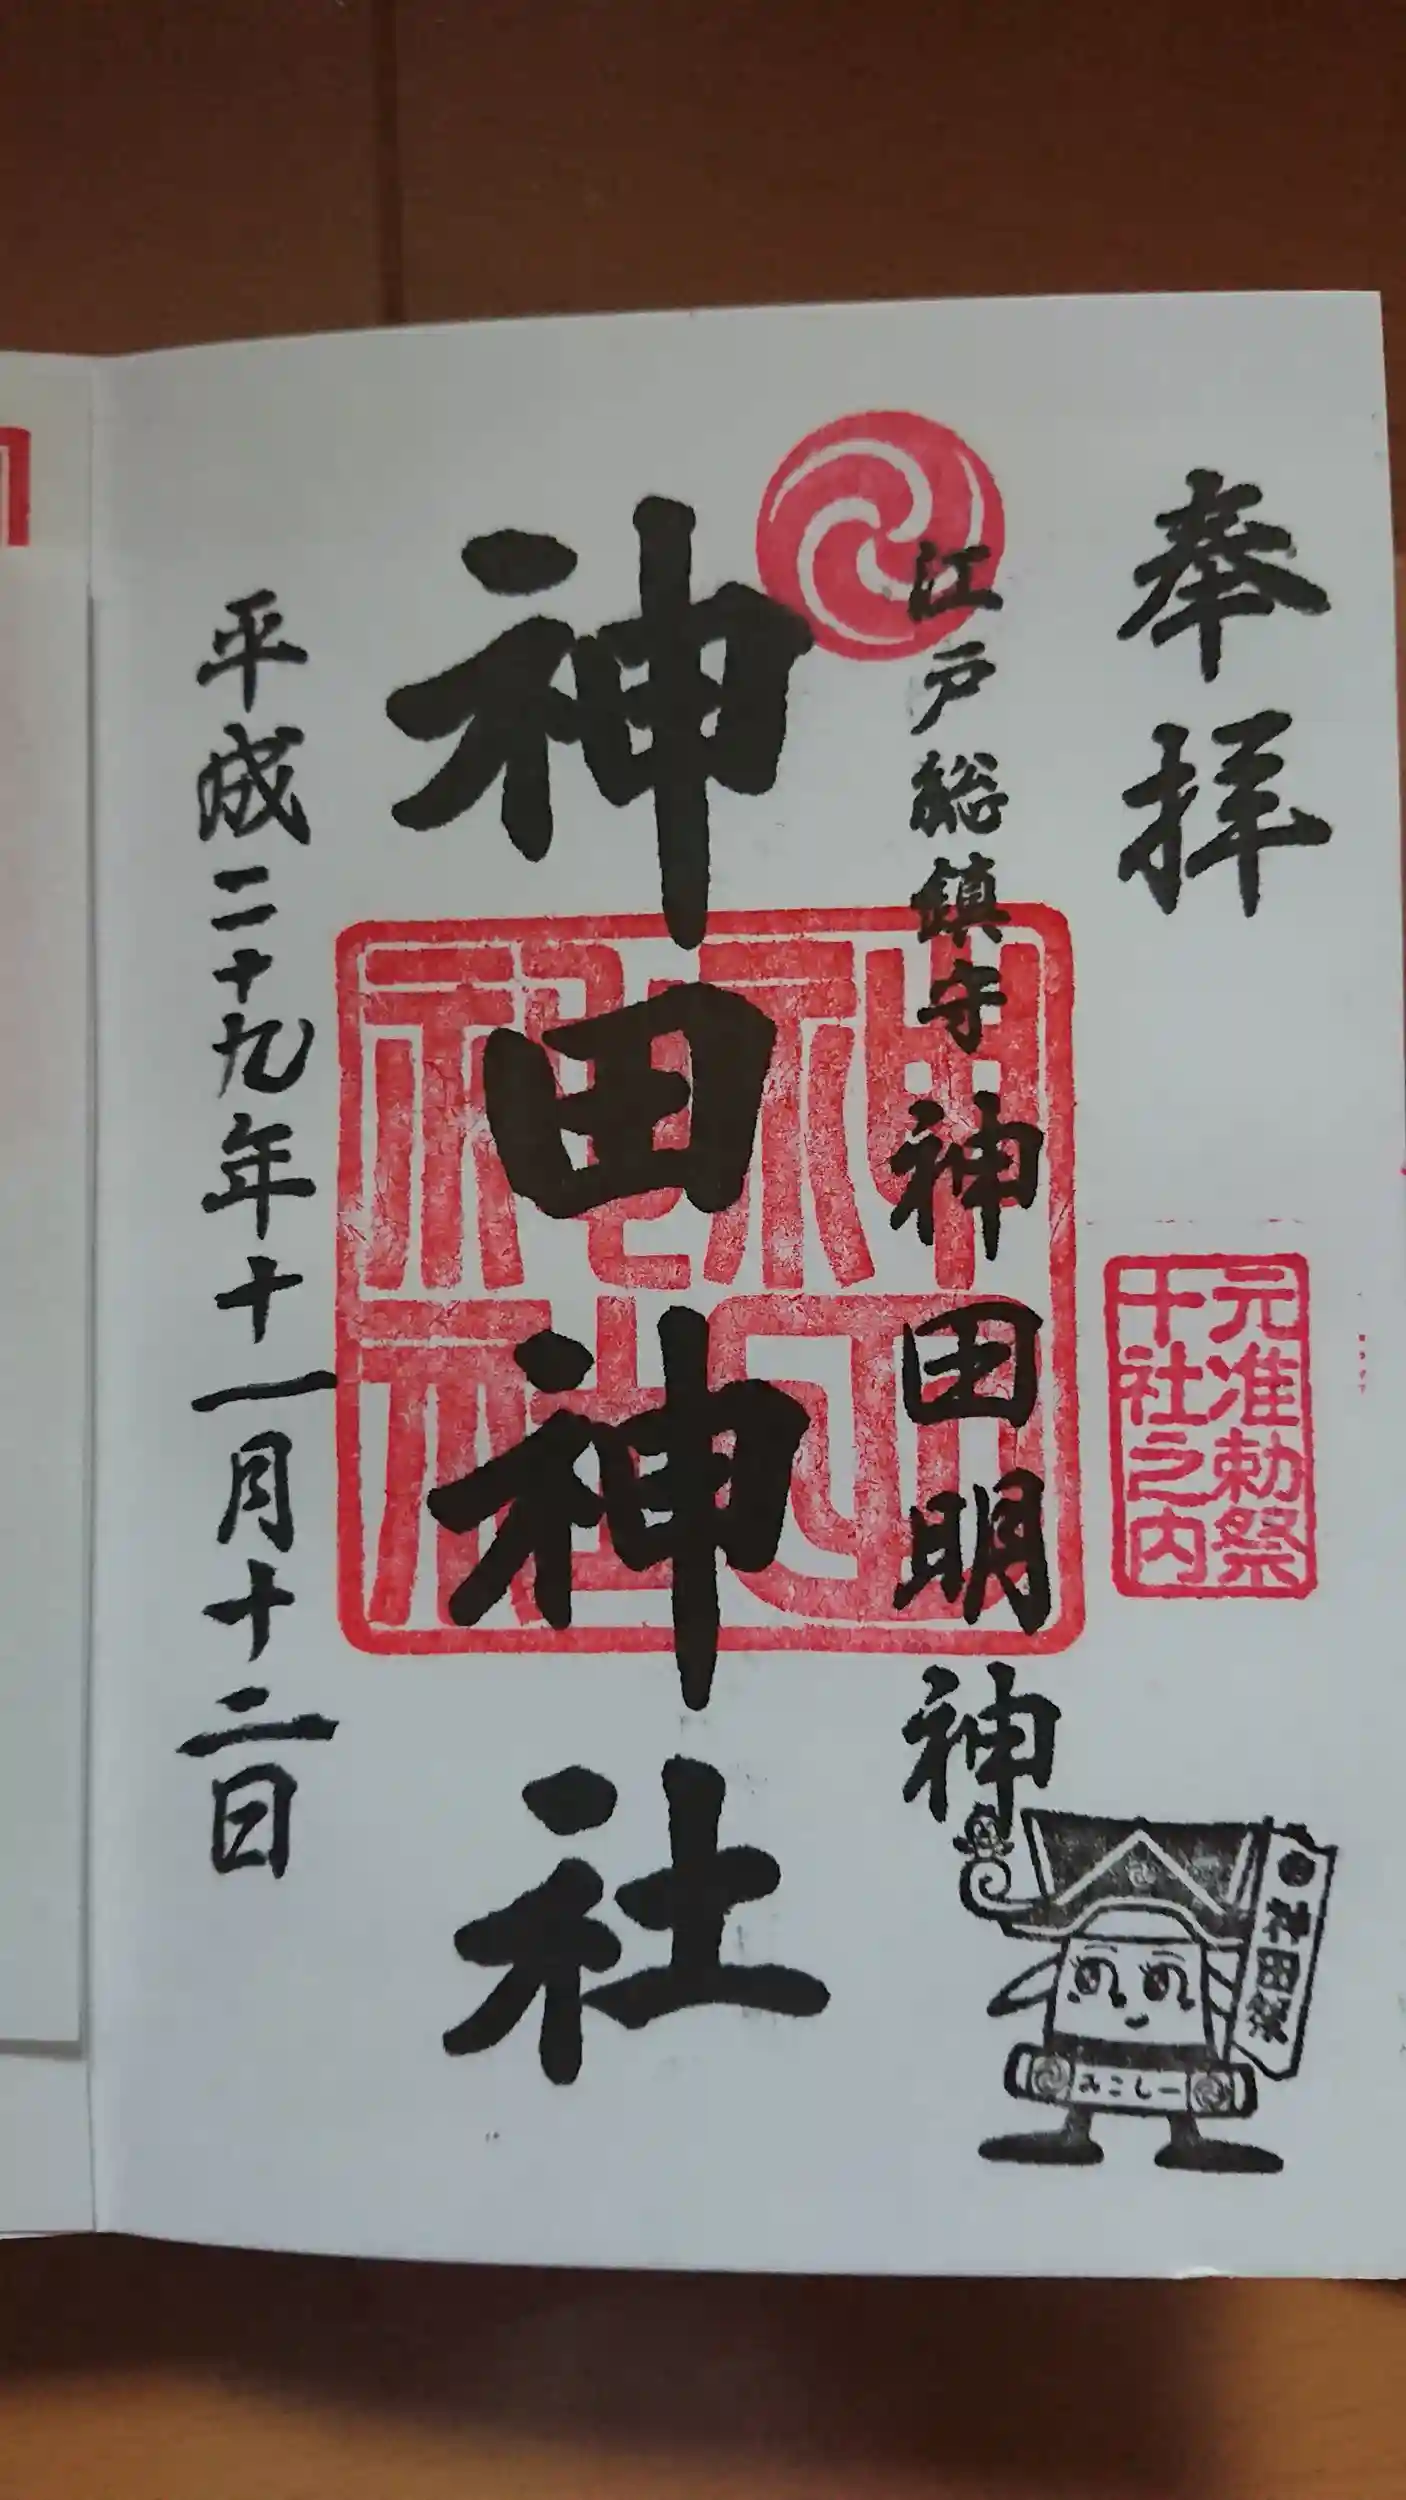 奉拝
元准勅祭
十社之内
江戸総鎮守神田明神
神田神社
平成二十九年十一月十二日
神田祭
みこしー